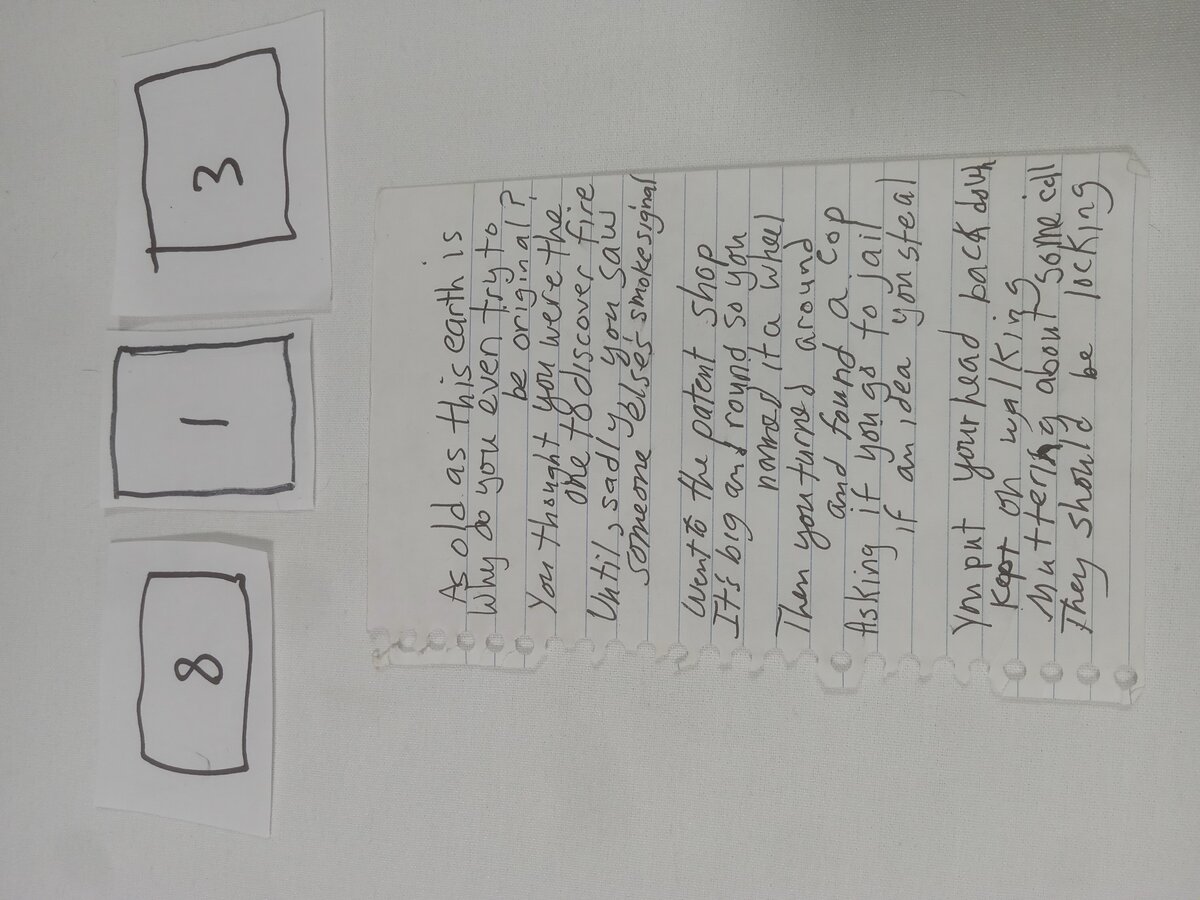 8
1
3
As old as this earth is
Why do you even try to
be original?
You thought you were the
one to discover fire
Until, sadly you saw
someone else's smoke signal
Went to the patent shop
It's big and round so you
named it a wheel
Then you turned around
and found a cop
Asking if you go to jail
if an idea you steal
You put your head back down
kept on walking
Muttering about some cell
They should be locking